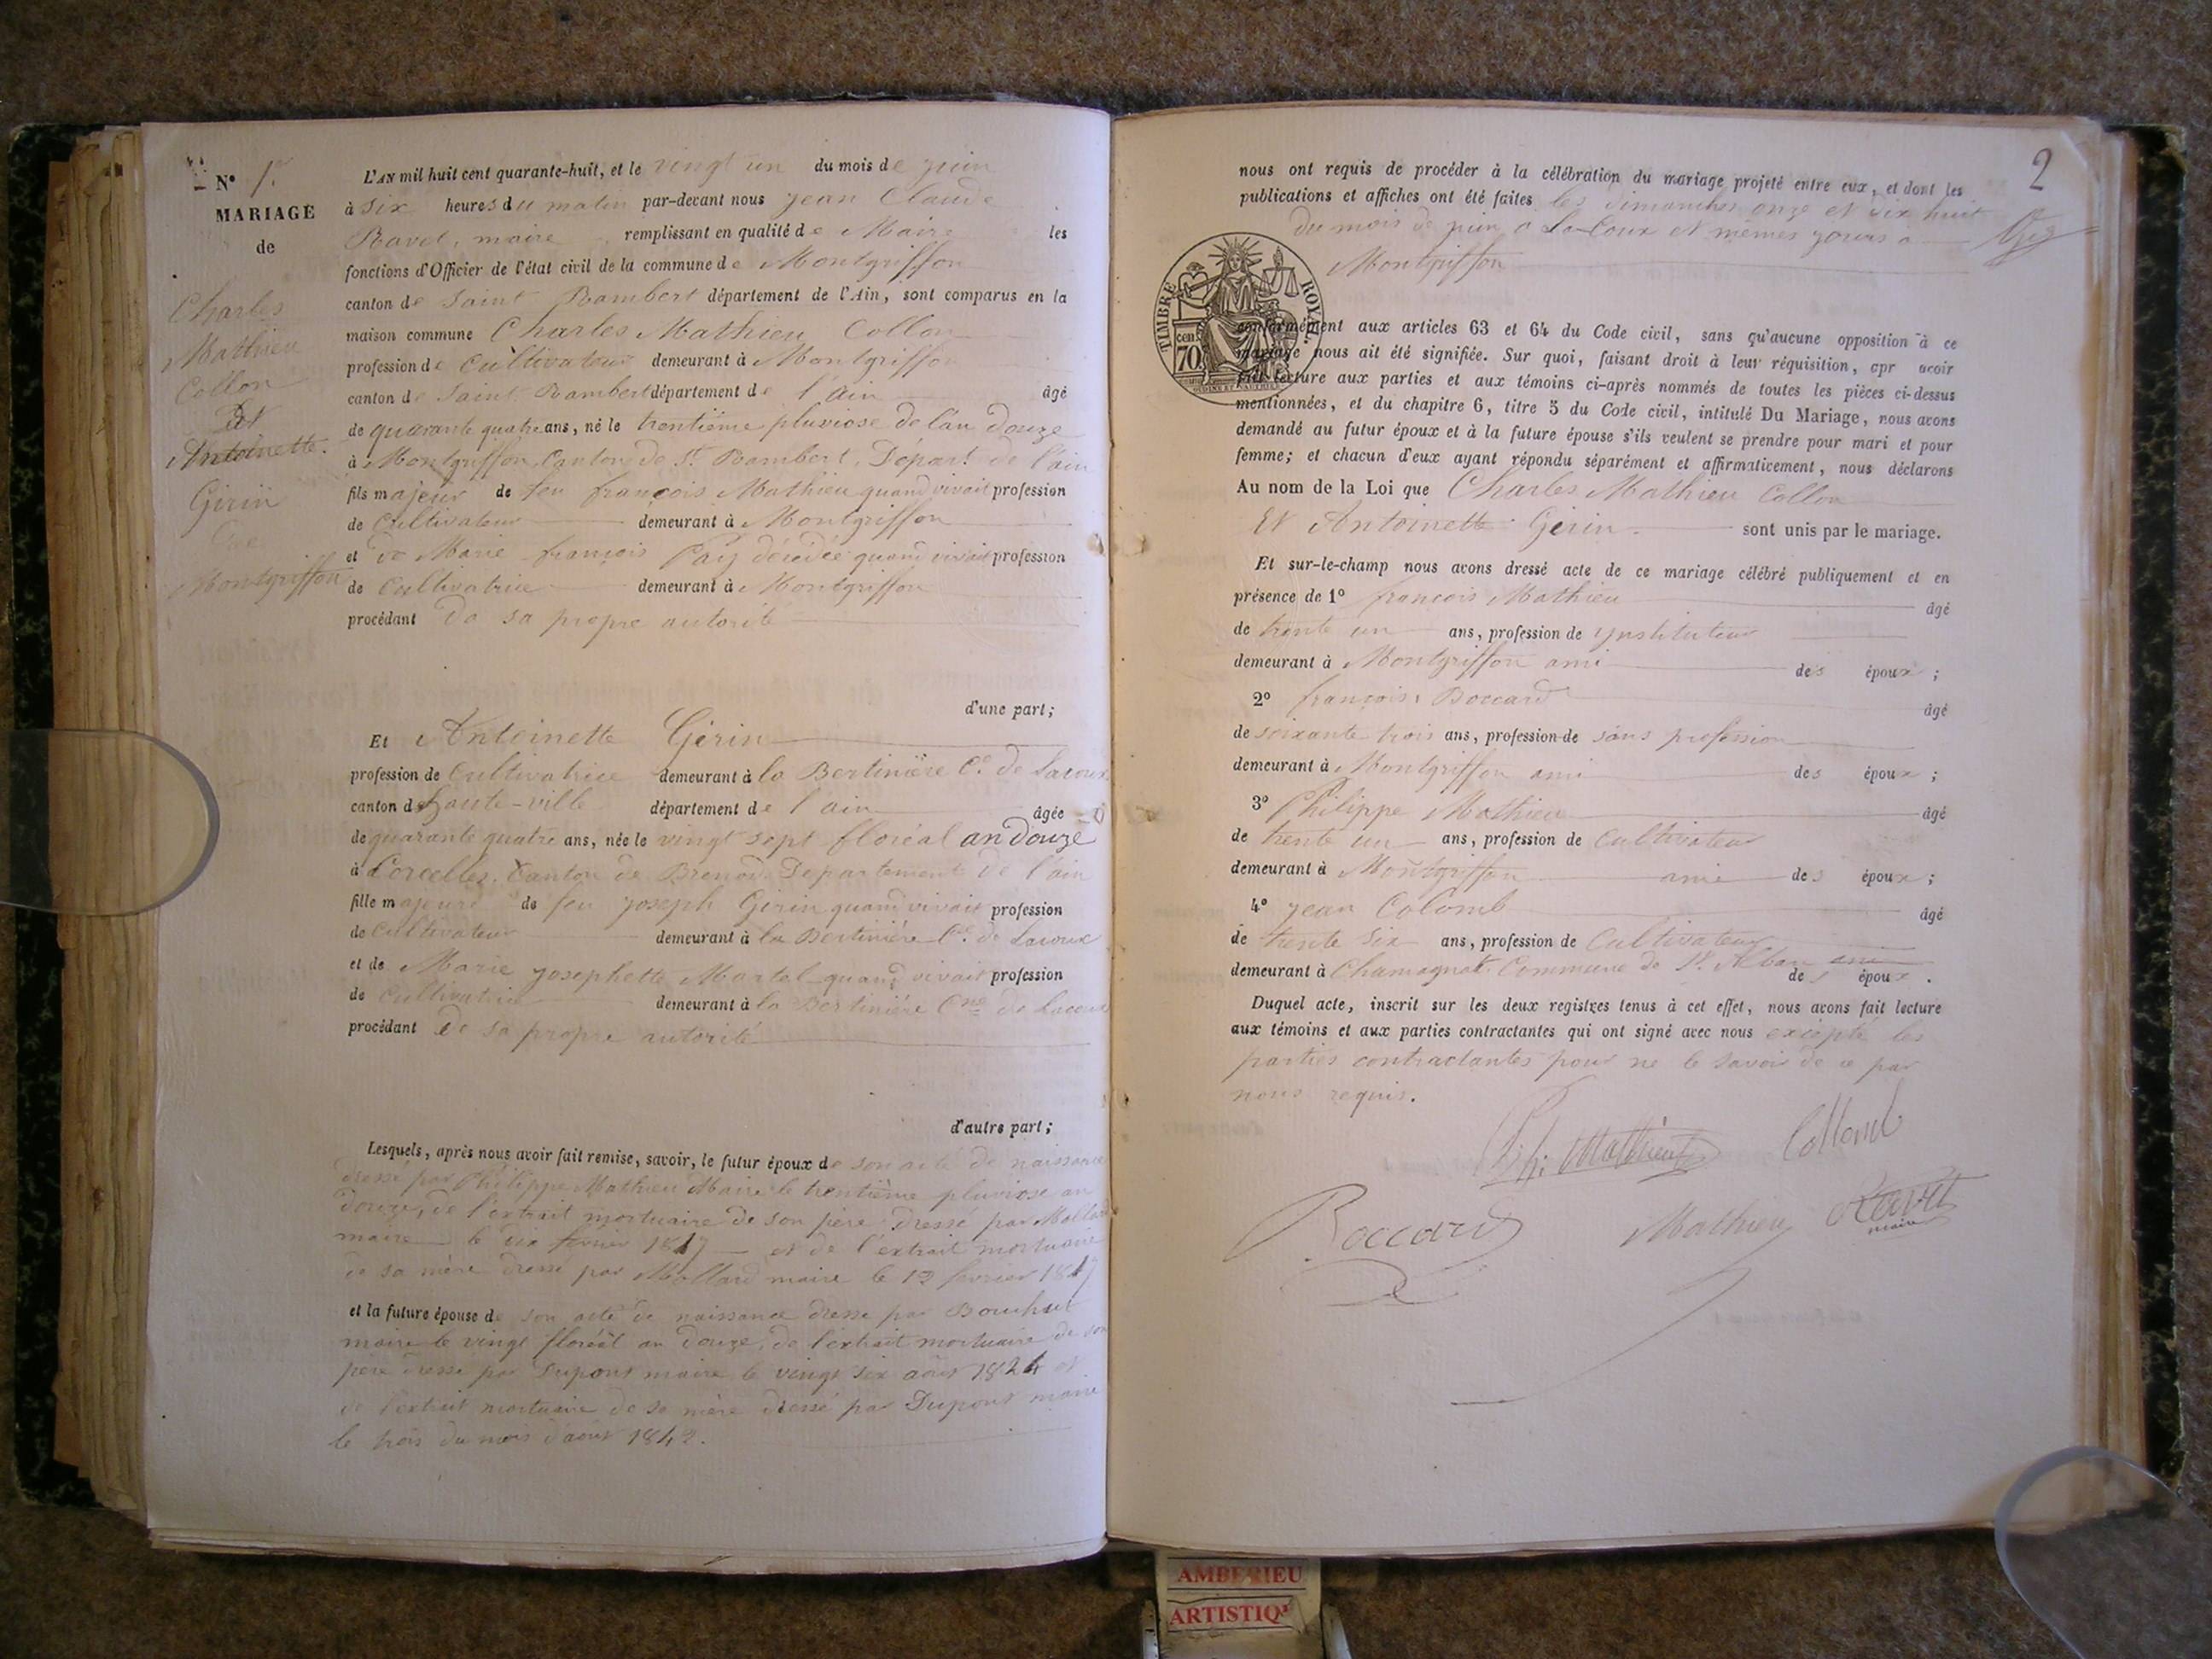 N° 1.
MARIAGE
de
Charles
Mathieu
Collon
Et
Antoinette
Girin
De
Montgriffon
L'AN mil huit cent quarante-huit, et le vingt un du mois de juin
à six heures du matin par-devant nous jean Claude
Ravet, maire remplissant en qualité de Maire les
fonctions d'Officier de l'état civil de la commune de Montgriffon
canton de Saint Rambert département de l'Ain, sont comparus en la
maison commune Charles Mathieu Collon
profession de Cultivateur demeurant à Montgriffon
canton de Saint Rambert département de l'ain âgé
de quarante quatre ans, né le trentième pluviose de l'an douze
à Montgriffon, Canton de St. Rambert, Départ. de l'ain
fils majeur de feu françois Mathieu quand vivait profession
de Cultivateur demeurant à Montgriffon
et de Marie françois décédée quand vivait profession
de Cultivatrice demeurant à Montgriffon
procédant de sa propre autorité
d'une part;
Et Antoinette Girin
profession de Cultivatrice demeurant à la Bertinière Ce. de Lacoux
canton de haute-ville département de l'ain âgée
de quarante quatre ans, née le vingt sept floréal an douze
à Corcelles, Canton de Brenod Departement de l'ain
fille majeure de feu joseph Girin quand vivait profession
de Cultivateur demeurant à la Bertinière Ce. de Lacoux
et de Marie josephette Martel quand vivait profession
de Cultivatrice demeurant à la Bertinière Cne de Lacoux
procédant de sa propre autorité
d'autre part;
Lesquels, après nous avoir fait remise, savoir, le futur époux de son acte de naissance
dressé par Philippe Mathieu Maire le trentième pluviose an
douze, de l'extrait mortuaire de son père dressé par Mollard
maire le dix fevrier 1817 et de l'extrait mortuaire
de sa mère dressé par Mollard maire le 12 fevrier 1817
et la future épouse de son acte de naissance dressé par Bouchut
maire le vingt floréal an douze, de l'extrait mortuaire de son
père dressé par Dupont maire le vingt six août 1824 et
de l'extrait mortuaire de sa mère dressé par Dupont maire
le trois du mois d'août 1842.
2
nous ont requis de procéder à la célébration du mariage projeté entre eux, et dont les
publications et affiches ont été faites les dimanches onze et dix huit
du mois de juin a La Coux et mêmes jours a
Montgriffon
TIMBRE ROYAL
70 cen.
conformément aux articles 63 et 64 du Code civil, sans qu'aucune opposition à ce
mariage nous ait été signifiée. Sur quoi, faisant droit à leur réquisition, apr avoir
fait lecture aux parties et aux témoins ci-après nommés de toutes les pièces ci-dessus
mentionnées, et du chapitre 6, titre 5 du Code civil, intitulé Du Mariage, nous avons
demandé au futur époux et à la future épouse s'ils veulent se prendre pour mari et pour
femme; et chacun d'eux ayant répondu séparément et affirmativement, nous déclarons
Au nom de la Loi que Charles Mathieu Collon
Et Antoinette Girin sont unis par le mariage.
Et sur-le-champ nous avons dressé acte de ce mariage célébré publiquement et en
présence de 1° françois Mathieu âgé
de trente un ans, profession de ynstituteur
demeurant à Montgriffon ami des époux;
2° françois Boccard âgé
de soixante trois ans, profession de sans profession
demeurant à Montgriffon ami des époux;
3° Philippe Mathieu âgé
de trente un ans, profession de Cultivateur
demeurant à Montgriffon amie des époux;
4° jean Colomb âgé
de trente six ans, profession de Cultivateur
demeurant à Chamagnat Commune de St. Alban ami des époux.
Duquel acte, inscrit sur les deux registres tenus à cet effet, nous avons fait lecture
aux témoins et aux parties contractantes qui ont signé avec nous excepté les
parties contractantes pour ne le savoir de ce par
nous requis.
Ph: Mathieu Collomb
Boccard Mathieu Ravet
maire
AMBERIEU
ARTISTIQ